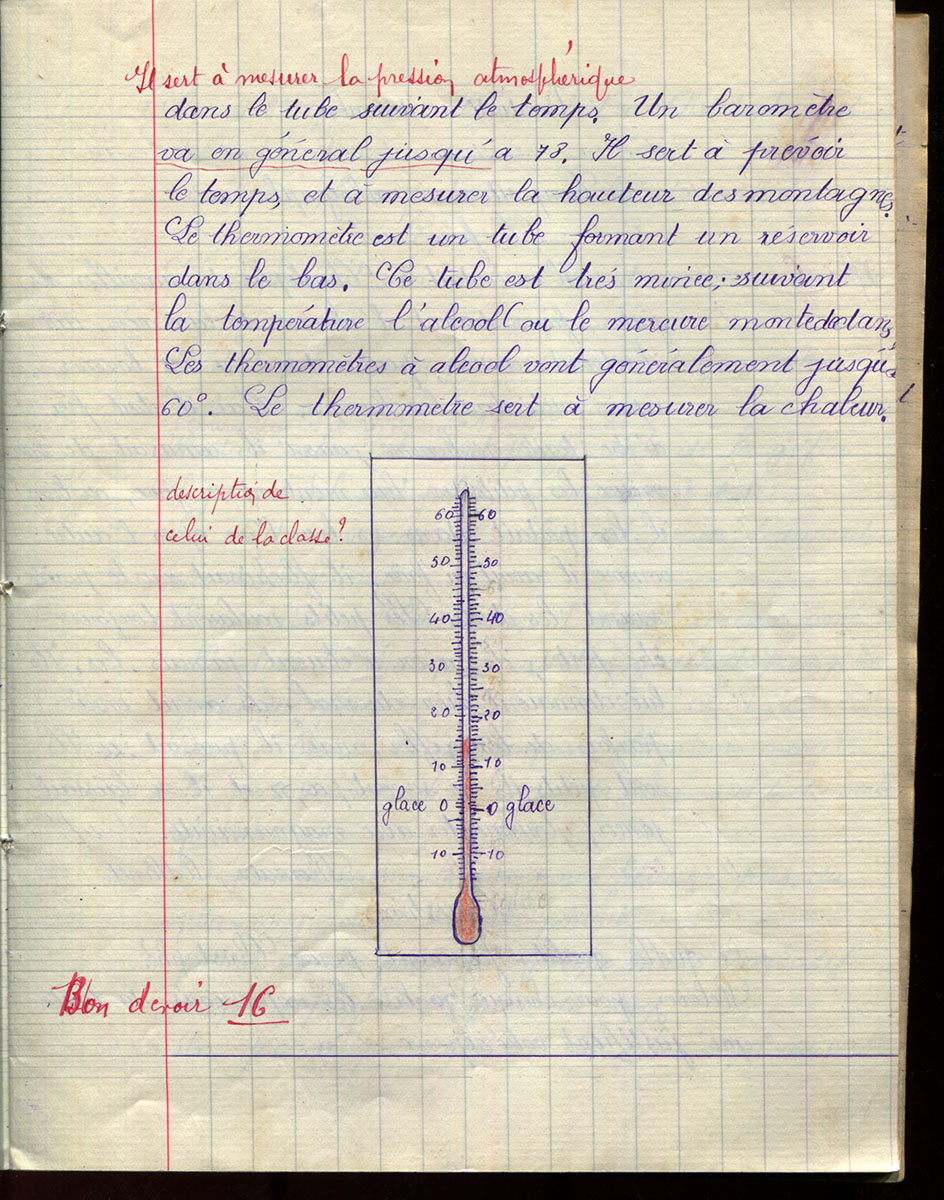 Il sert à mesurer la pression atmosphérique
dans le tube suivant le temps. Un baromètre
va en général jusqu'a 78. Il sert à prévoir
le temps, et à mesurer la hauteur des montagnes.
Le thermomètre est un tube formant un réservoir
dans le bas. Ce tube est trés mince; suivant
la température l'alcool (ou le mercure monte dedans
Les thermomètres à alcool vont généralement jusqu'à
60°. Le thermomètre sert à mesurer la chaleur.
description de
celui de la classe?
60 60
50 50
40 40
30 30
20 20
10 10
glace 0 0 glace
10 10
Bon devoir 16